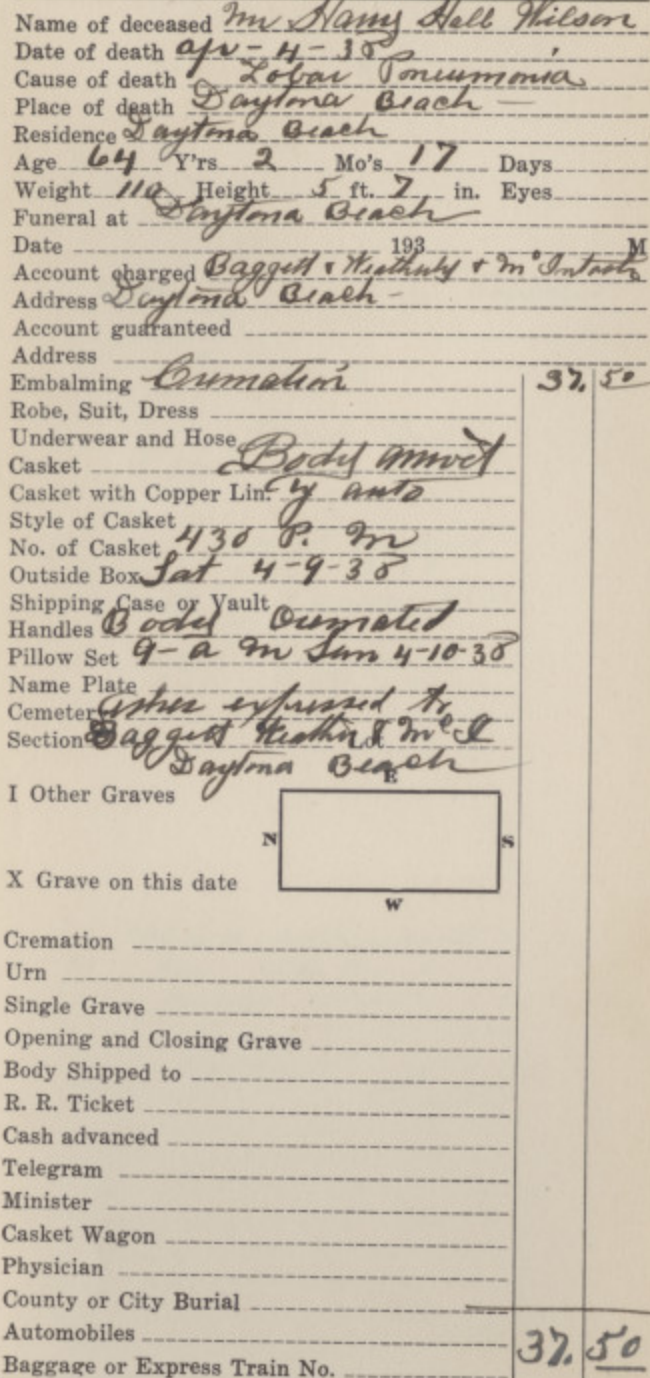 Name of deceased Mr Harry Hall Wilson
Date of death Apr - 4 - 38
Cause of death Lobar Pneumonia
Place of death Daytona Beach -
Residence Daytona Beach
Age 64 Y'rs 2 Mo's 17 Days
Weight 110 Height 5 ft. 7 in. Eyes
Funeral at Daytona Beach
Date 193 M
Account charged Baggett & Weatherby & McIntosh
Address Daytona Beach -
Account guaranteed
Address
Embalming Cremation 37. 50
Robe, Suit, Dress
Underwear and Hose
Casket Body arrived
Casket with Copper Lin. by auto
Style of Casket
No. of Casket 430 P. M
Outside Box Sat 4-9-38
Shipping Case or Vault
Handles Body Cremated
Pillow Set 9 - a m Sun 4-10-38
Name Plate
Cemetery Ashes expressed to
Section Baggett Lot Mc I
Daytona Beach
E
I Other Graves
N S
X Grave on this date
W
Cremation
Urn
Single Grave
Opening and Closing Grave
Body Shipped to
R. R. Ticket
Cash advanced
Telegram
Minister
Casket Wagon
Physician
County or City Burial
Automobiles 37. 50
Baggage or Express Train No.